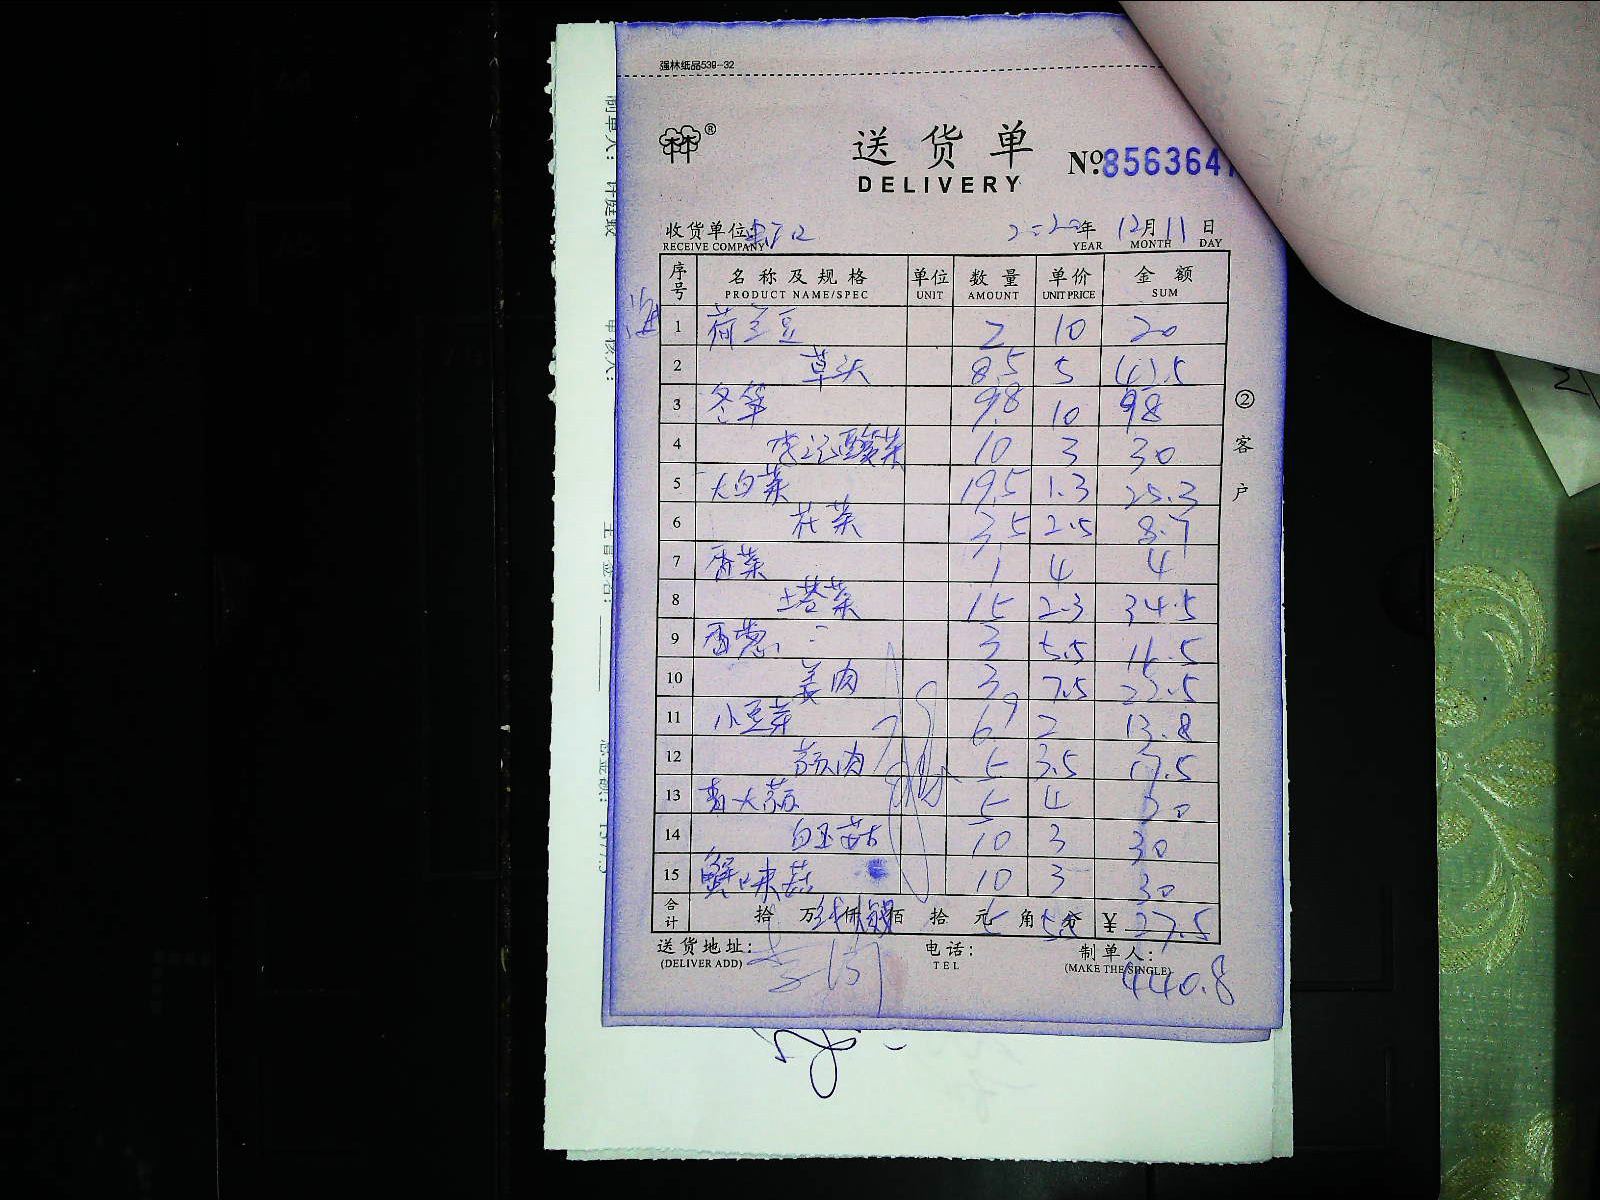 强林纸品539-32
®
送货单
DELIVERY
№:856364
收货单位
RECEIVE COMPANY
2020年 12月 11日
YEAR MONTH DAY
序号 名称及规格 单位 数量 单价 金额
PRODUCT NAME/SPEC UNIT AMOUNT UNIT PRICE SUM
海
1 荷兰豆 2 10 20
2 草头 8.5 5 42.5
3 冬笋 9.8 10 98
4 李记酸菜 10 3 30
5 大白菜 19.5 1.3 25.3
6 花菜 3.5 2.5 8.7
7 香菜 1 4 4
8 塔菜 15 2.3 34.5
9 香葱 3 5.5 16.5
10 姜肉 3 7.5 22.5
11 小豆芽 6.9 2 13.8
12 蒜肉 5 3.5 17.5
13 青大蒜 5 4 20
14 白玉菇 10 3 30
15 蟹味菇 10 3 30
合计 拾 万 仟 佰 拾 元 角 分 ¥ 27.5
5 5.5
②客户
送货地址:
(DELIVER ADD)
电话:
TEL
制单人:
(MAKE THE SINGLE)
440.8
制单人:
审核人:
总金额: